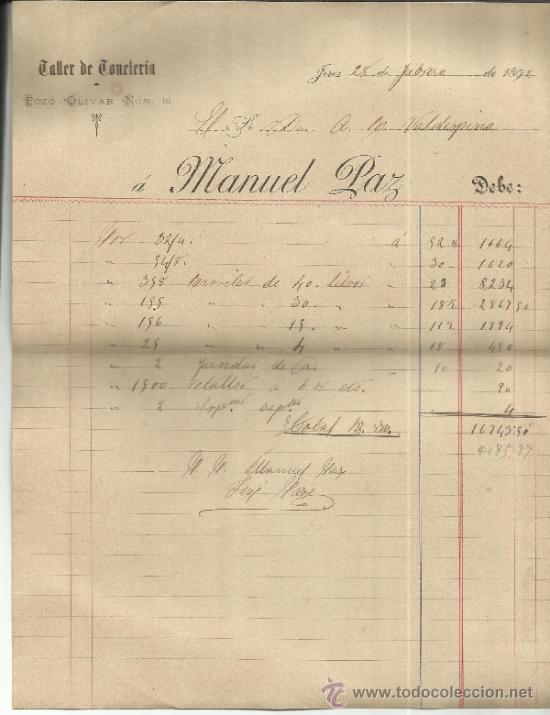 Taller de Tonelería
Pozo Olivar Núm. 16
Jerez 28 de febrero de 1892
El Sr. Dn. A. M. Valdespino
á Manuel Paz Debe:
Por 32/4 á 52 1664
" 54/5 " 30 1620
" 358 barriles de 40 litros " 23 8234
" 155 " " 30 " " 18½ 2867 50
" 156 " " 15 " " 11½ 1794
" 25 " " 4 " " 18 450
" 2 fundas de " 10 20
" 1500 90
" 2 4
Total 16743 50
4185 87
Manuel Paz
José Paz
www.todocoleccion.net